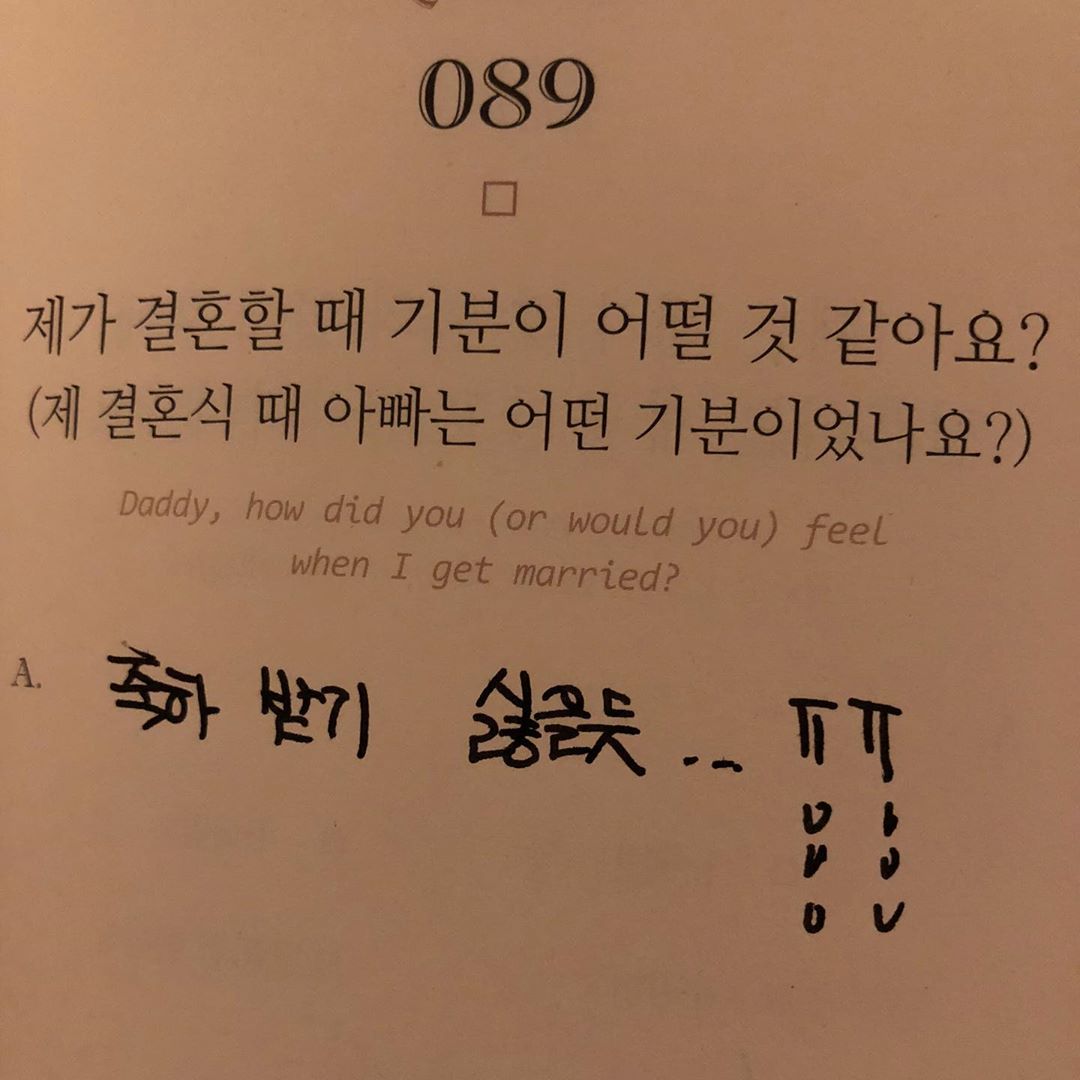 089
제가 결혼할 때 기분이 어떨 것 같아요?
(제 결혼식 때 아빠는 어떤 기분이었나요?)
Daddy, how did you (or would you) feel
when I get married?
A. 축하 받기 싫을듯... ㅠㅠ